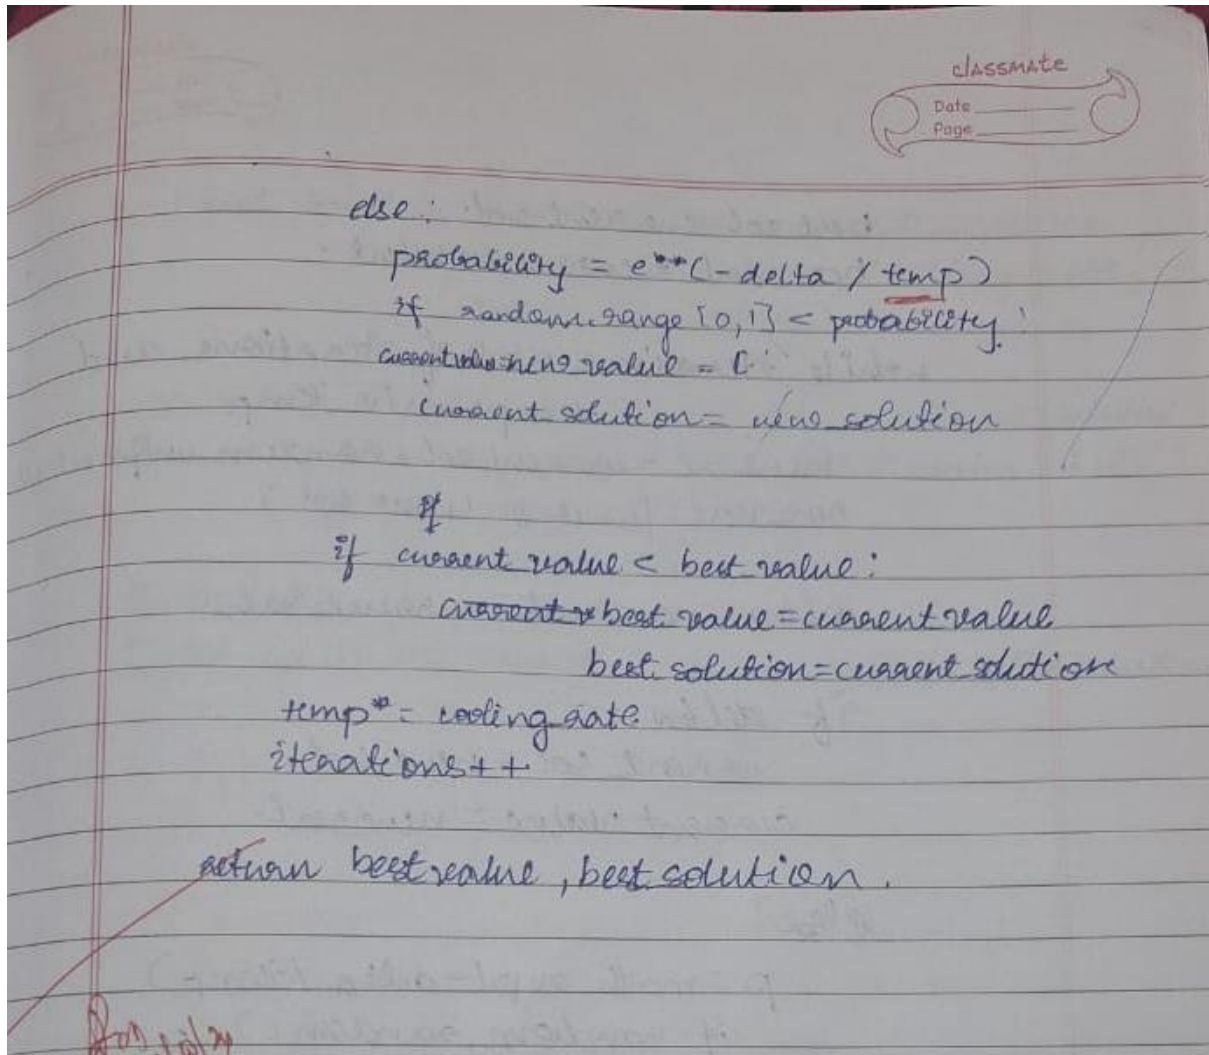 classmate
Date
Page
else :
probability = e**(-delta / temp)
if random.range [0,1] < probability :
current value = new value
current_solution = new_solution
if
if current_value < best_value :
best_value = current_value
best_solution = current_solution
temp* = cooling_rate
iterations++
return best_value , best_solution .